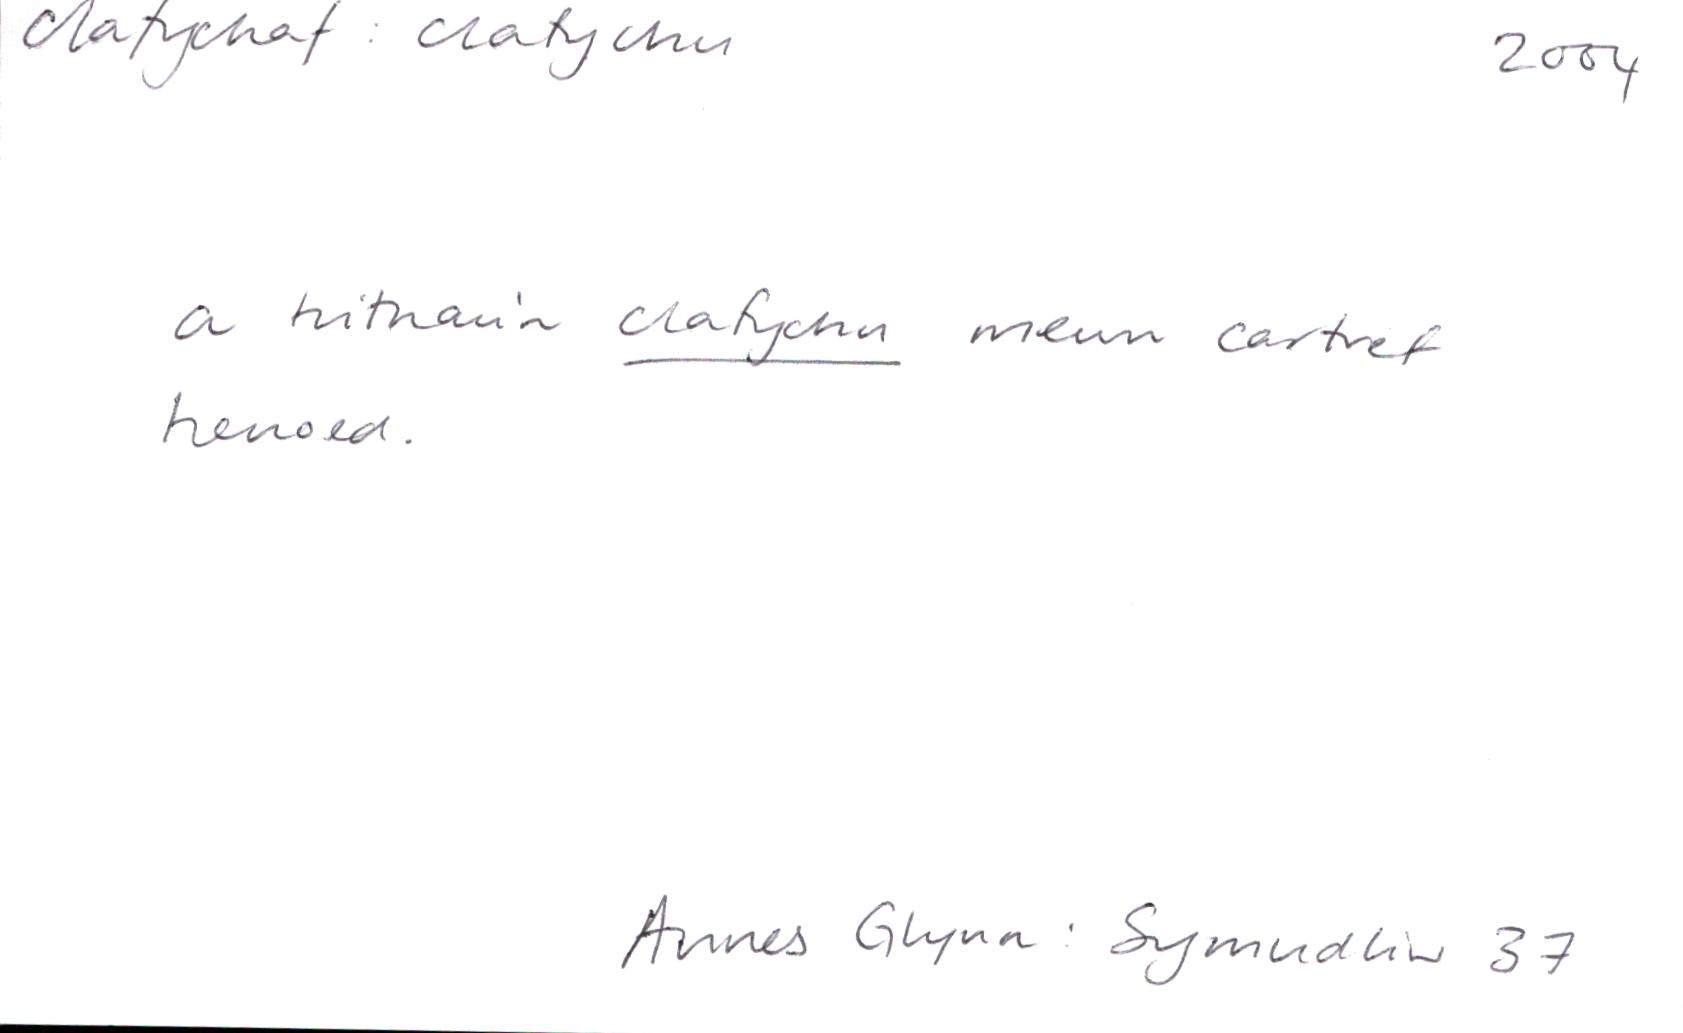 clafychaf : clafychu 2004
a hithau'n clafychu mewn cartref
henoed.
Annes Glynn : Symudliw 37